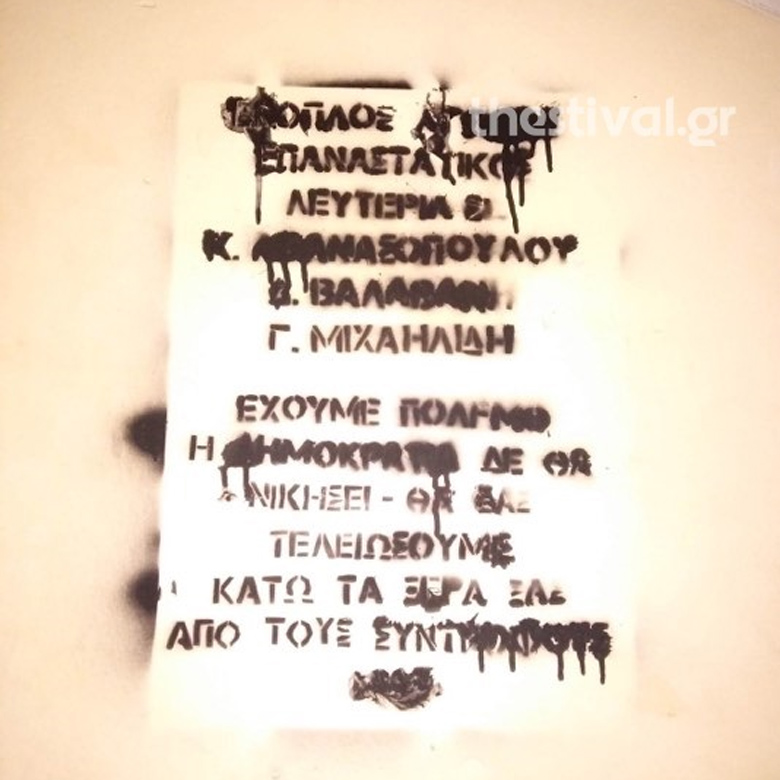 thestival.gr
ΕΝΟΠΛΟΣ
ΕΠΑΝΑΣΤΑΤΙΚΟΣ
ΛΕΥΤΕΡΙΑ
Κ. ΑΘΑΝΑΣΟΠΟΥΛΟΥ
ΒΑΛΑΒΑΝΗ
Γ. ΜΙΧΑΗΛΙΔΗ
ΕΧΟΥΜΕ ΠΟΛΕΜΟ
Η ΔΗΜΟΚΡΑΤΙΑ ΔΕ ΘΑ
ΝΙΚΗΣΕΙ - ΘΑ ΣΑΣ
ΤΕΛΕΙΩΣΟΥΜΕ
ΚΑΤΩ ΤΑ ΞΕΡΑ ΣΑΣ
ΑΠΟ ΤΟΥΣ ΣΥΝΤΡΟΦΟΥΣ